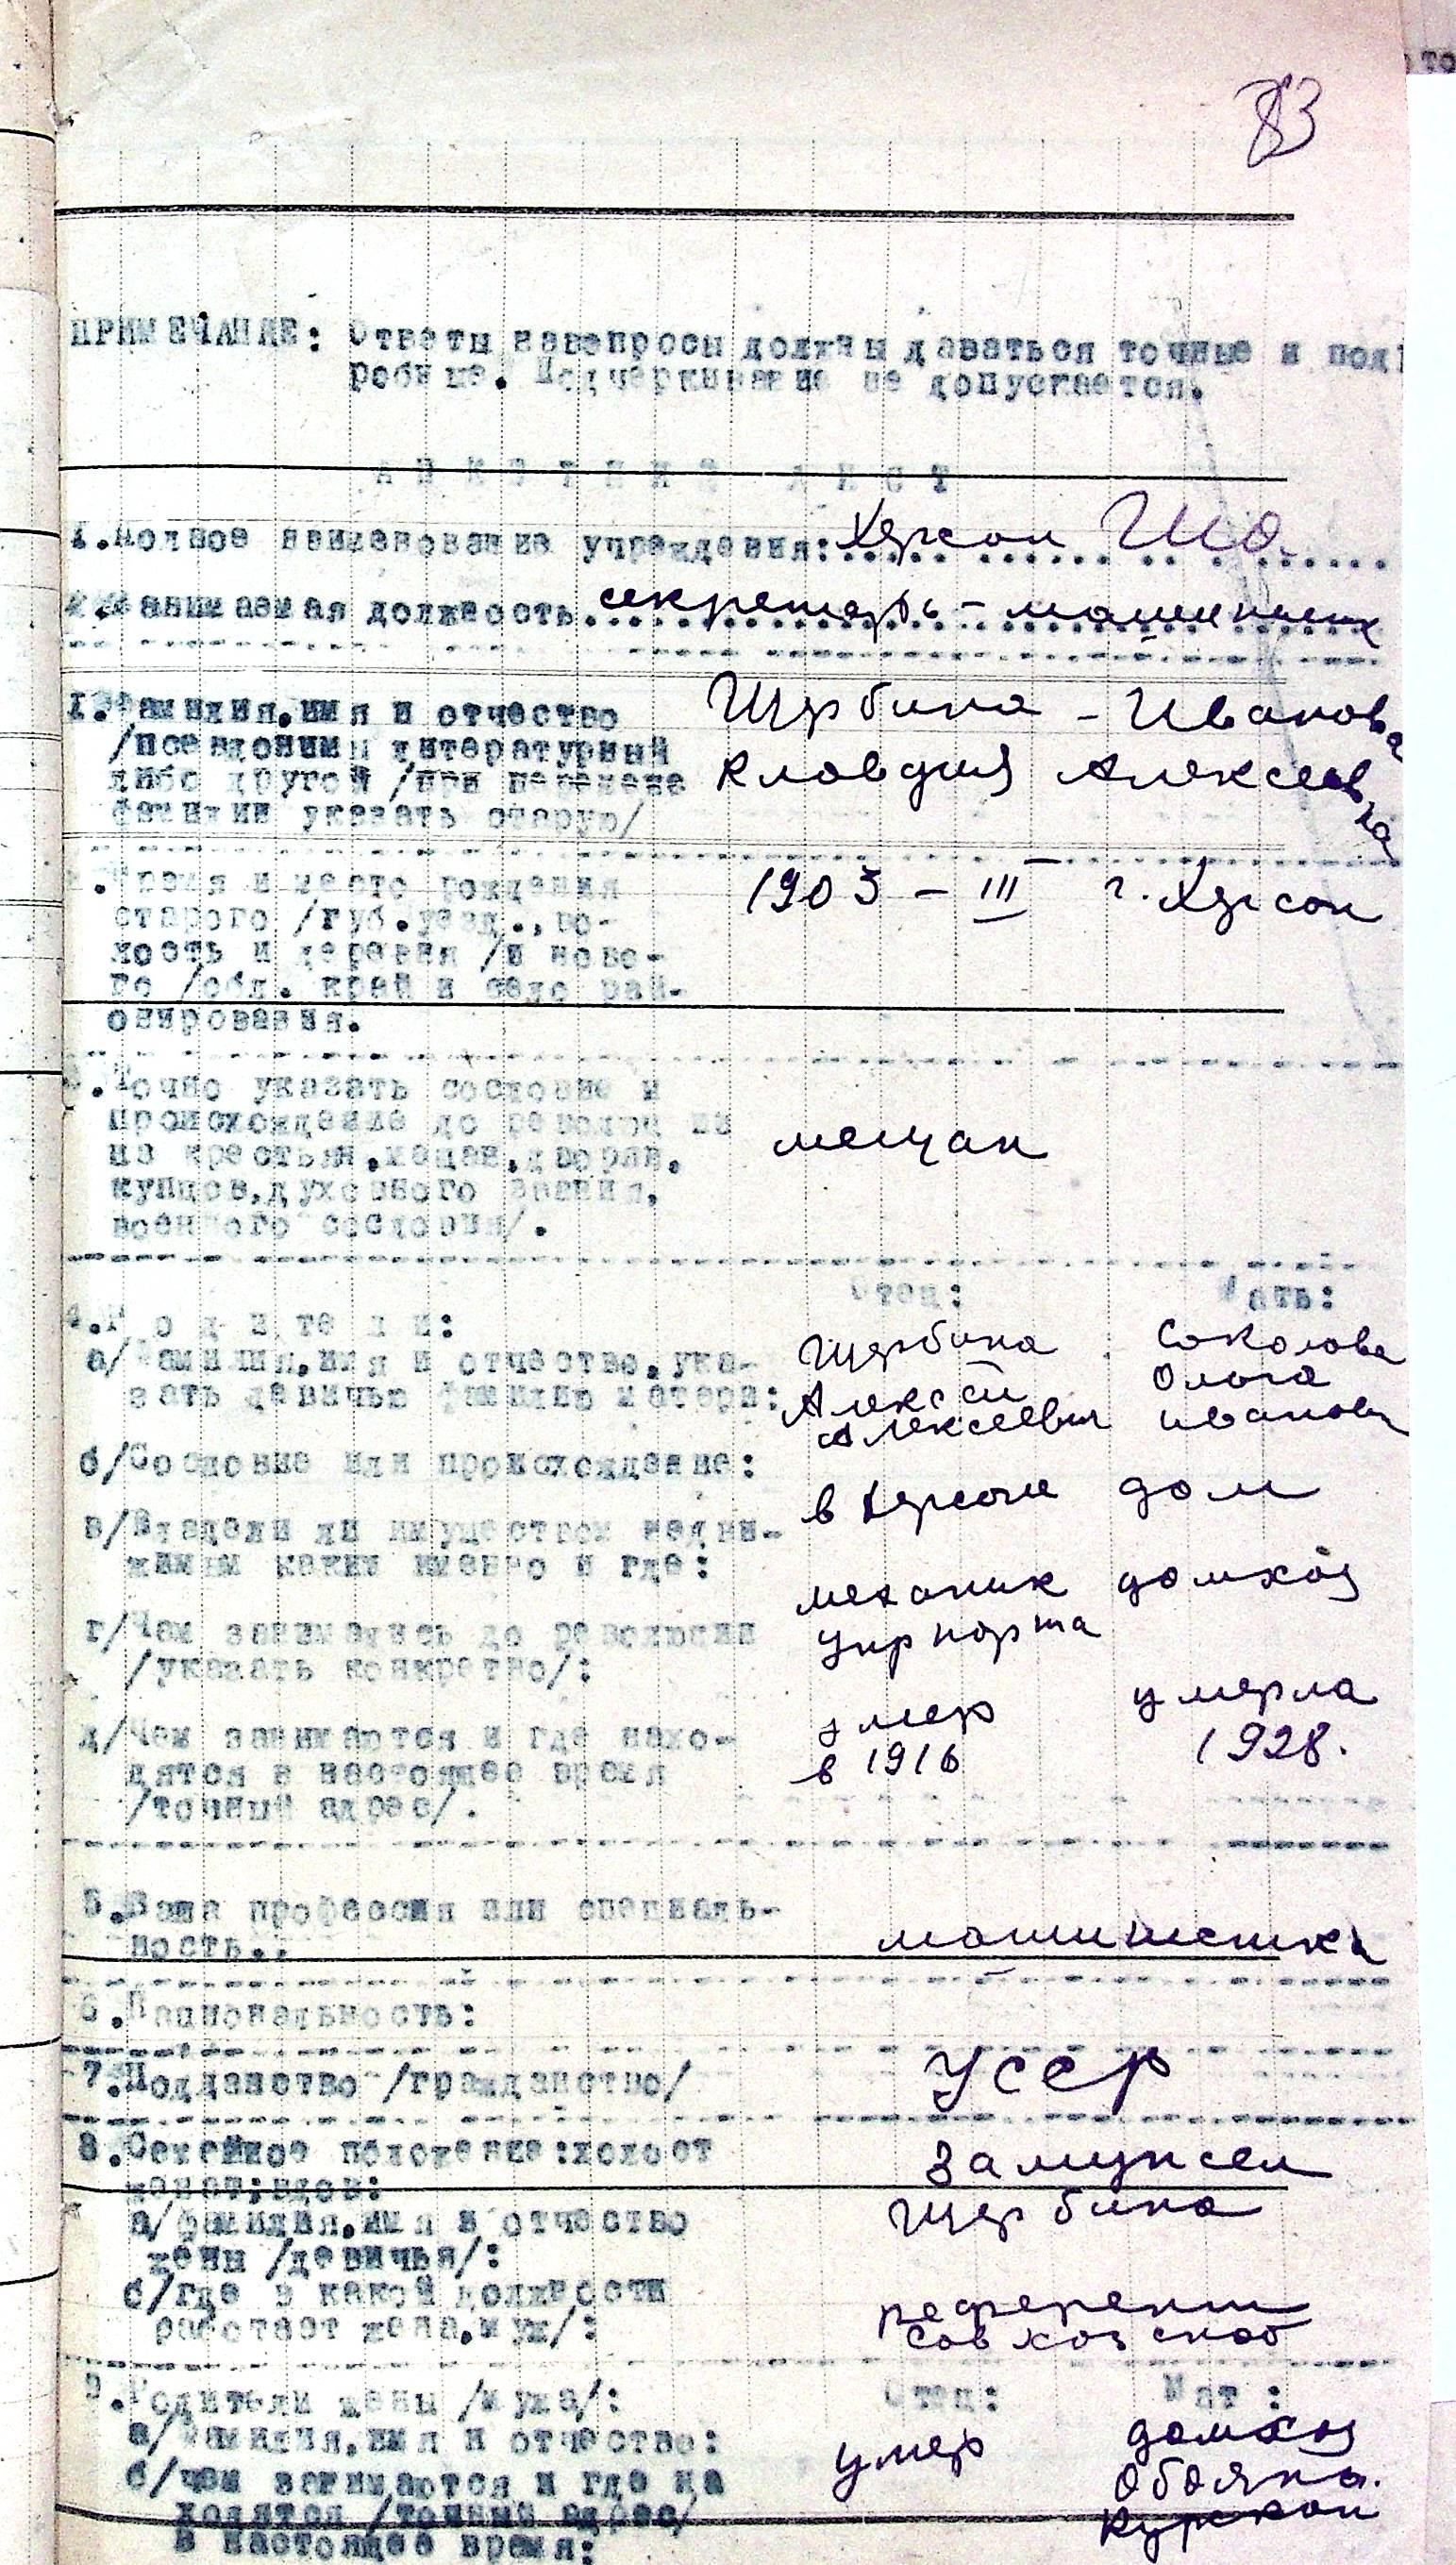 83
ПРИМЕЧАНИЕ: Ответы на вопросы должны даваться точные и под
робные. Подчеркивание не допускается.
АНКЕТНЫЙ ЛИСТ
1. Полное наименование учреждения: Херсон
2. Занимаемая должность секретарь - машинистк
1. Фамилия, имя и отчество Щербина - Иванова
/псевдонимы литературный Клавдия Алексеевна
либо другой /при перемене
фамилии указать старую/
2. Время и место рождения 1903 - III г. Херсон
старого /губ. уезд., во-
лость и деревня /и ново-
го /обл. край и село рай-
онирования.
3. Точно указать сословие и
происхождение до революц
из крестьян, мещан, дворян, мещан
купцов, духовного звания,
военного сословия/.
Отец: Мать:
4. Родители:
а/Фамилия, имя и отчество, ука- Щербина Соколова
зать девичью фамилию матери: Алексей Ольга
Алексеевич Ивановн
б/Сословие или происхождение:
в Херсоне дом
в/Владели ли имуществом недви-
жимым каким именно и где:
механик домхоз
г/Чем занимались до революции Укрпорта
/указать конкретно/:
умер умерла
д/Чем занимаются и где нахо- в 1916 1928.
дятся в настоящее время
/точный адрес/.
5. Ваша профессия или специаль-
ность.. машинистка
6. Национальность:
7. Подданство /гражданство/ УССР
8. Семейное положение: холост замужем
женат; вдов:
а/фамилия, имя и отчество Щербина
жены /девичья/:
б/где в какой должности
работает жена, муж/: референт
Совхозснаб
9. Родители жены /мужа/: Отец: Мат :
а/Фамилия, имя и отчество: умер домхоз
б/чем занимаются и где на Обоянь.
ходятся /точный адрес/ Курской
в настоящее время: